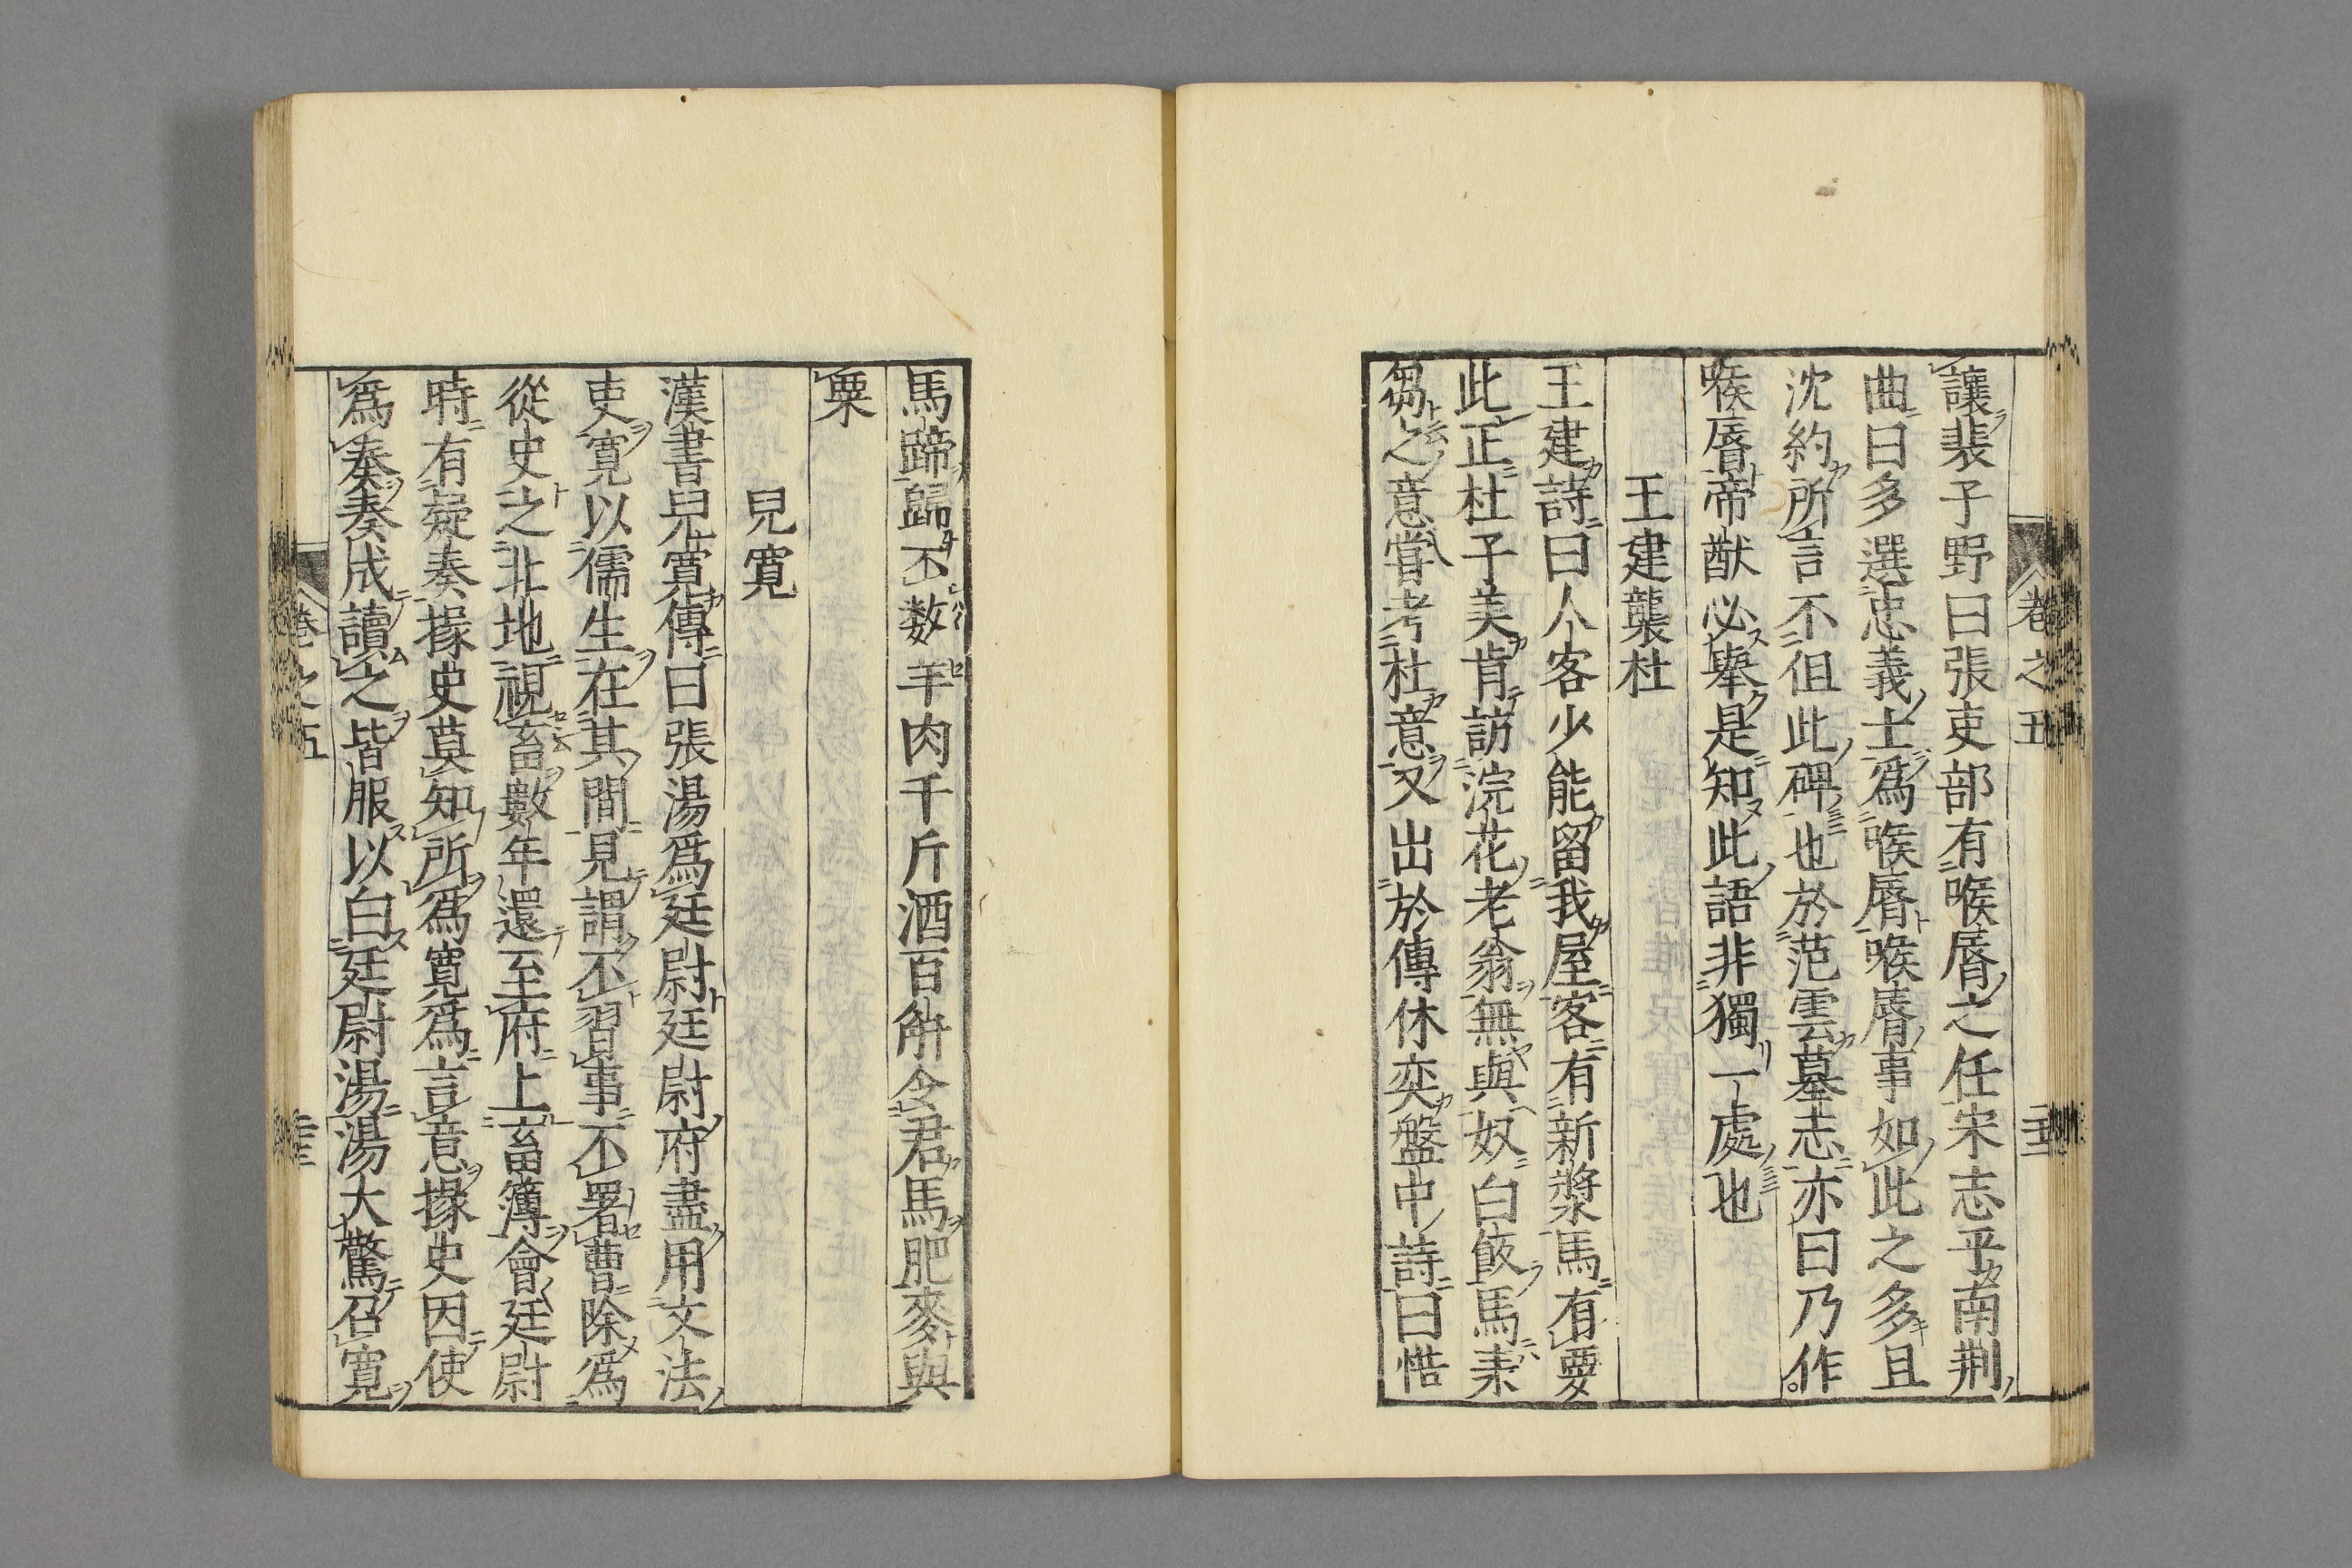 卷之五
讓裴子野曰張吏部有喉脣之任宋志平南荆
曲曰多選忠義士爲喉脣喉脣事如此之多且
沈約所言不但此碑也於范雲墓志亦曰乃作
喉脣帝猷必舉是知此語非獨一處也
王建襲杜
王建詩曰人客少能留我屋客有新漿馬有要
此正杜子美肯訪浣花老翁無與奴白飯馬靑
芻之意嘗考杜意又出於傅休奕盤中詩曰惜
馬蹄歸不数羊肉千斤酒百斛令君馬肥麥與
粟
兒寬
漢書兒寬傳曰張湯爲廷尉廷尉府盡用文法
吏寬以儒生在其間見謂不習事不署曹除爲
從史之北地視畜數年還至府上畜簿會廷尉
時有疑奏掾史莫知所爲寬爲言意掾史因使
爲奏奏成讀之皆服以白廷尉湯湯大驚召寬
卷之五